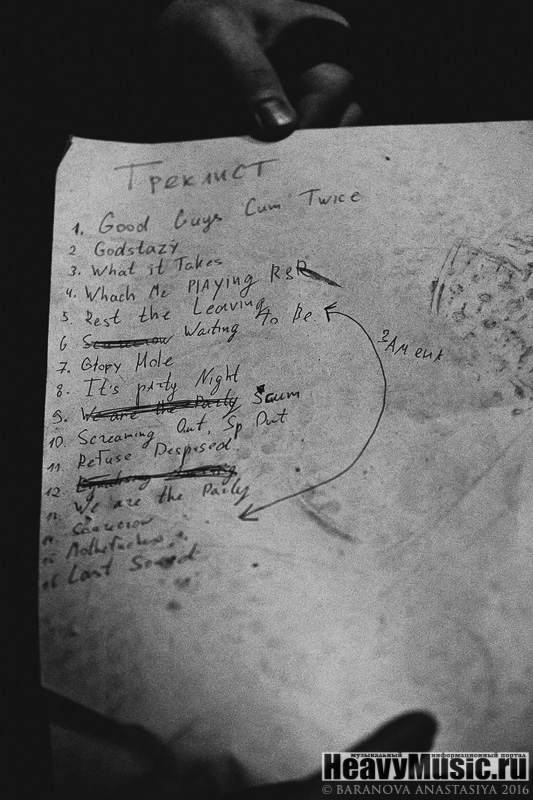 Треклист
1. Good Guys Cum Twice
2 Godstazy
3. What it Takes
4. Whach Me PlAYING R&R
5. Rest the Leaving
6 Scarecrow Waiting To Be
7. Glory Hole
8. It's party Night
9. We are the Party Scum
10. Screaming Out, Sp Out
11. Refuse Despised
12.
We are the Party
Scarecrow
Last
HeavyMusic.ru
музыкальный информационный портал
© BARANOVA ANASTASIYA 2016